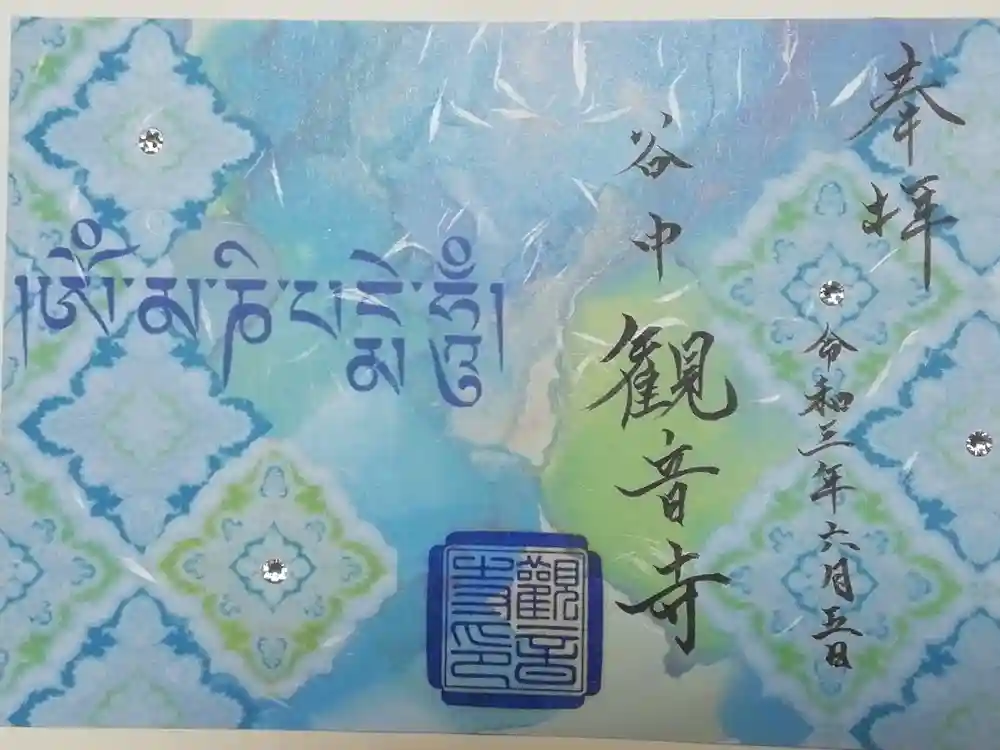 奉拝
令和三年六月五日
谷中
観音寺
།ཨོཾ་མ་ཎི་པ་དྨེ་ཧཱུྃ།
觀音
寺印